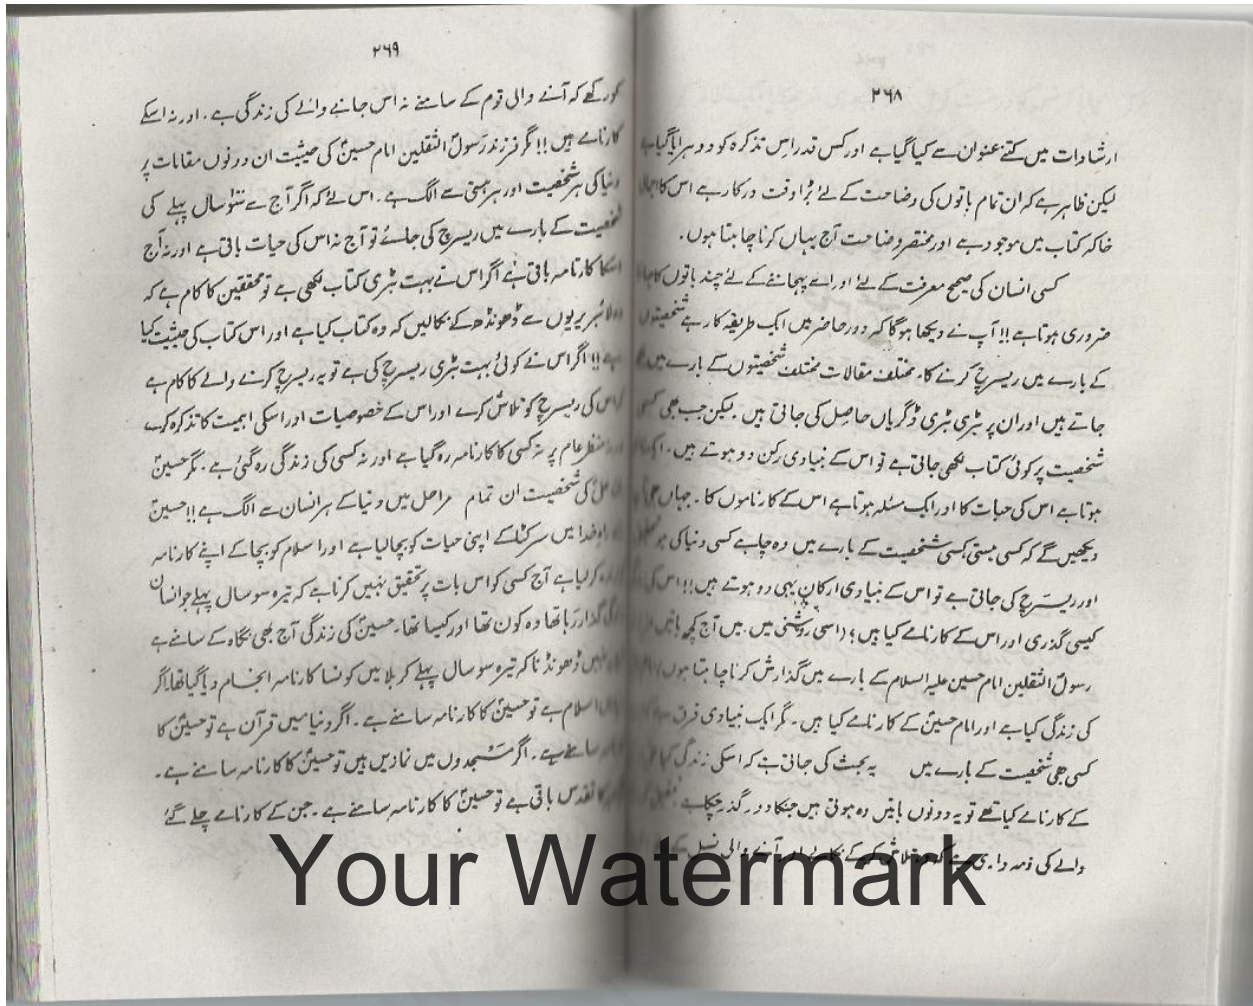 ۲۶۸
ارشادات میں کتنے عنوان سے کیا گیا ہے اور کس قدر اس تذکرہ کو دوہرایا گیا ہے
لیکن ظاہر ہے کہ ان تمام باتوں کی وضاحت کے لئے بڑا وقت درکار ہے اس کا اجمالی
خاکہ کتاب میں موجود ہے اور مختصر وضاحت آج یہاں کرنا چاہتا ہوں۔
کسی انسان کی صحیح معرفت کے لئے اور اسے پہچاننے کے لئے چند باتوں کا جاننا
ضروری ہوتا ہے!! آپ نے دیکھا ہوگا کہ دور حاضر میں ایک طریقہ کار ہے شخصیتوں
کے بارے میں ریسرچ کرنے کا۔ مختلف مقالات مختلف شخصیتوں کے بارے میں
جاتے ہیں اور ان پر بڑی بڑی ڈگریاں حاصل کی جاتی ہیں۔ لیکن جب بھی کسی
شخصیت پر کوئی کتاب لکھی جاتی ہے تو اس کے بنیادی رکن دو ہوتے ہیں۔
ہوتا ہے اس کی حیات کا اور ایک مسئلہ ہوتا ہے اس کے کارناموں کا۔ جہاں بھی
دیکھیں گے کہ کسی ہستی کسی شخصیت کے بارے میں وہ چاہے کسی دنیا کی ہو
اور ریسرچ کی جاتی ہے تو اس کے بنیادی ارکان یہی دو ہوتے ہیں!! اس کی
کیسی گذری اور اس کے کارنامے کیا ہیں؟ (اسی روشنی میں میں آج کچھ باتیں
رسولؐ الثقلین امام حسین علیہ السلام کے بارے میں گذارش کرنا چاہتا ہوں)
کی زندگی کیا ہے اور امام حسینؑ کے کارنامے کیا ہیں۔ مگر ایک بنیادی فرق ہے
کسی بھی شخصیت کے بارے میں یہ بحث کی جاتی ہے کہ اسکی زندگی کیا
کے کارنامے کیا تھے تو یہ دونوں باتیں وہ ہوتی ہیں جنکا دور گذر چکا ہے
والے کی ذمہ داری ہے کہ وہ تلاش کر کے نکالے اور آنے والی نسل کے
۲۶۹
کو رکھے کہ آنے والی قوم کے سامنے نہ اس جانے والے کی زندگی ہے۔ اور نہ اسکے
کارنامے ہیں!! مگر فرزند رسولؐ الثقلین امام حسینؑ کی حیثیت ان دونوں مقامات پر
دنیا کی ہر شخصیت اور ہر ہستی سے الگ ہے۔ اس لئے کہ اگر آج سے سو سال پہلے کی
شخصیت کے بارے میں ریسرچ کی جائے تو آج نہ اس کی حیات باقی ہے اور نہ آج
اسکا کارنامہ باقی ہے اگر اس نے بہت بڑی کتاب لکھی ہے تو محققین کا کام ہے کہ
لائبریریوں سے ڈھونڈھ کے نکالیں کہ وہ کتاب کیا ہے اور اس کتاب کی حیثیت کیا
ہے!! اگر اس نے کوئی بہت بڑی ریسرچ کی ہے تو یہ ریسرچ کرنے والے کا کام ہے
کہ اس کی ریسرچ کو تلاش کرے اور اس کے خصوصیات اور اسکی اہمیت کا تذکرہ کرے
ورنہ منظر عام پر نہ کسی کا کارنامہ رہ گیا ہے اور نہ کسی کی زندگی رہ گئی ہے۔ مگر حسینؑ
کی شخصیت ان تمام مراحل میں دنیا کے ہر انسان سے الگ ہے!! حسینؑ
راہ خدا میں سر کٹا کے اپنی حیات کو بچا لیا ہے اور اسلام کو بچا کے اپنے کارنامہ
کر لیا ہے آج کسی کو اس بات پر تحقیق نہیں کرنا ہے کہ تیرہ سو سال پہلے جو انسان
گذار رہا تھا وہ کون تھا اور کیسا تھا۔ حسینؑ کی زندگی آج بھی نگاہ کے سامنے ہے
نہیں ڈھونڈنا کہ تیرہ سو سال پہلے کربلا میں کونسا کارنامہ انجام دیا گیا تھا۔ اگر
اسلام ہے تو حسینؑ کا کارنامہ سامنے ہے۔ اگر دنیا میں قرآن ہے تو حسینؑ کا
سامنے ہے۔ اگر مسجدوں میں نمازیں ہیں تو حسینؑ کا کارنامہ سامنے ہے۔
کا تقدس باقی ہے تو حسینؑ کا کارنامہ سامنے ہے۔ جن کے کارنامے چلے گئے
Your Watermark